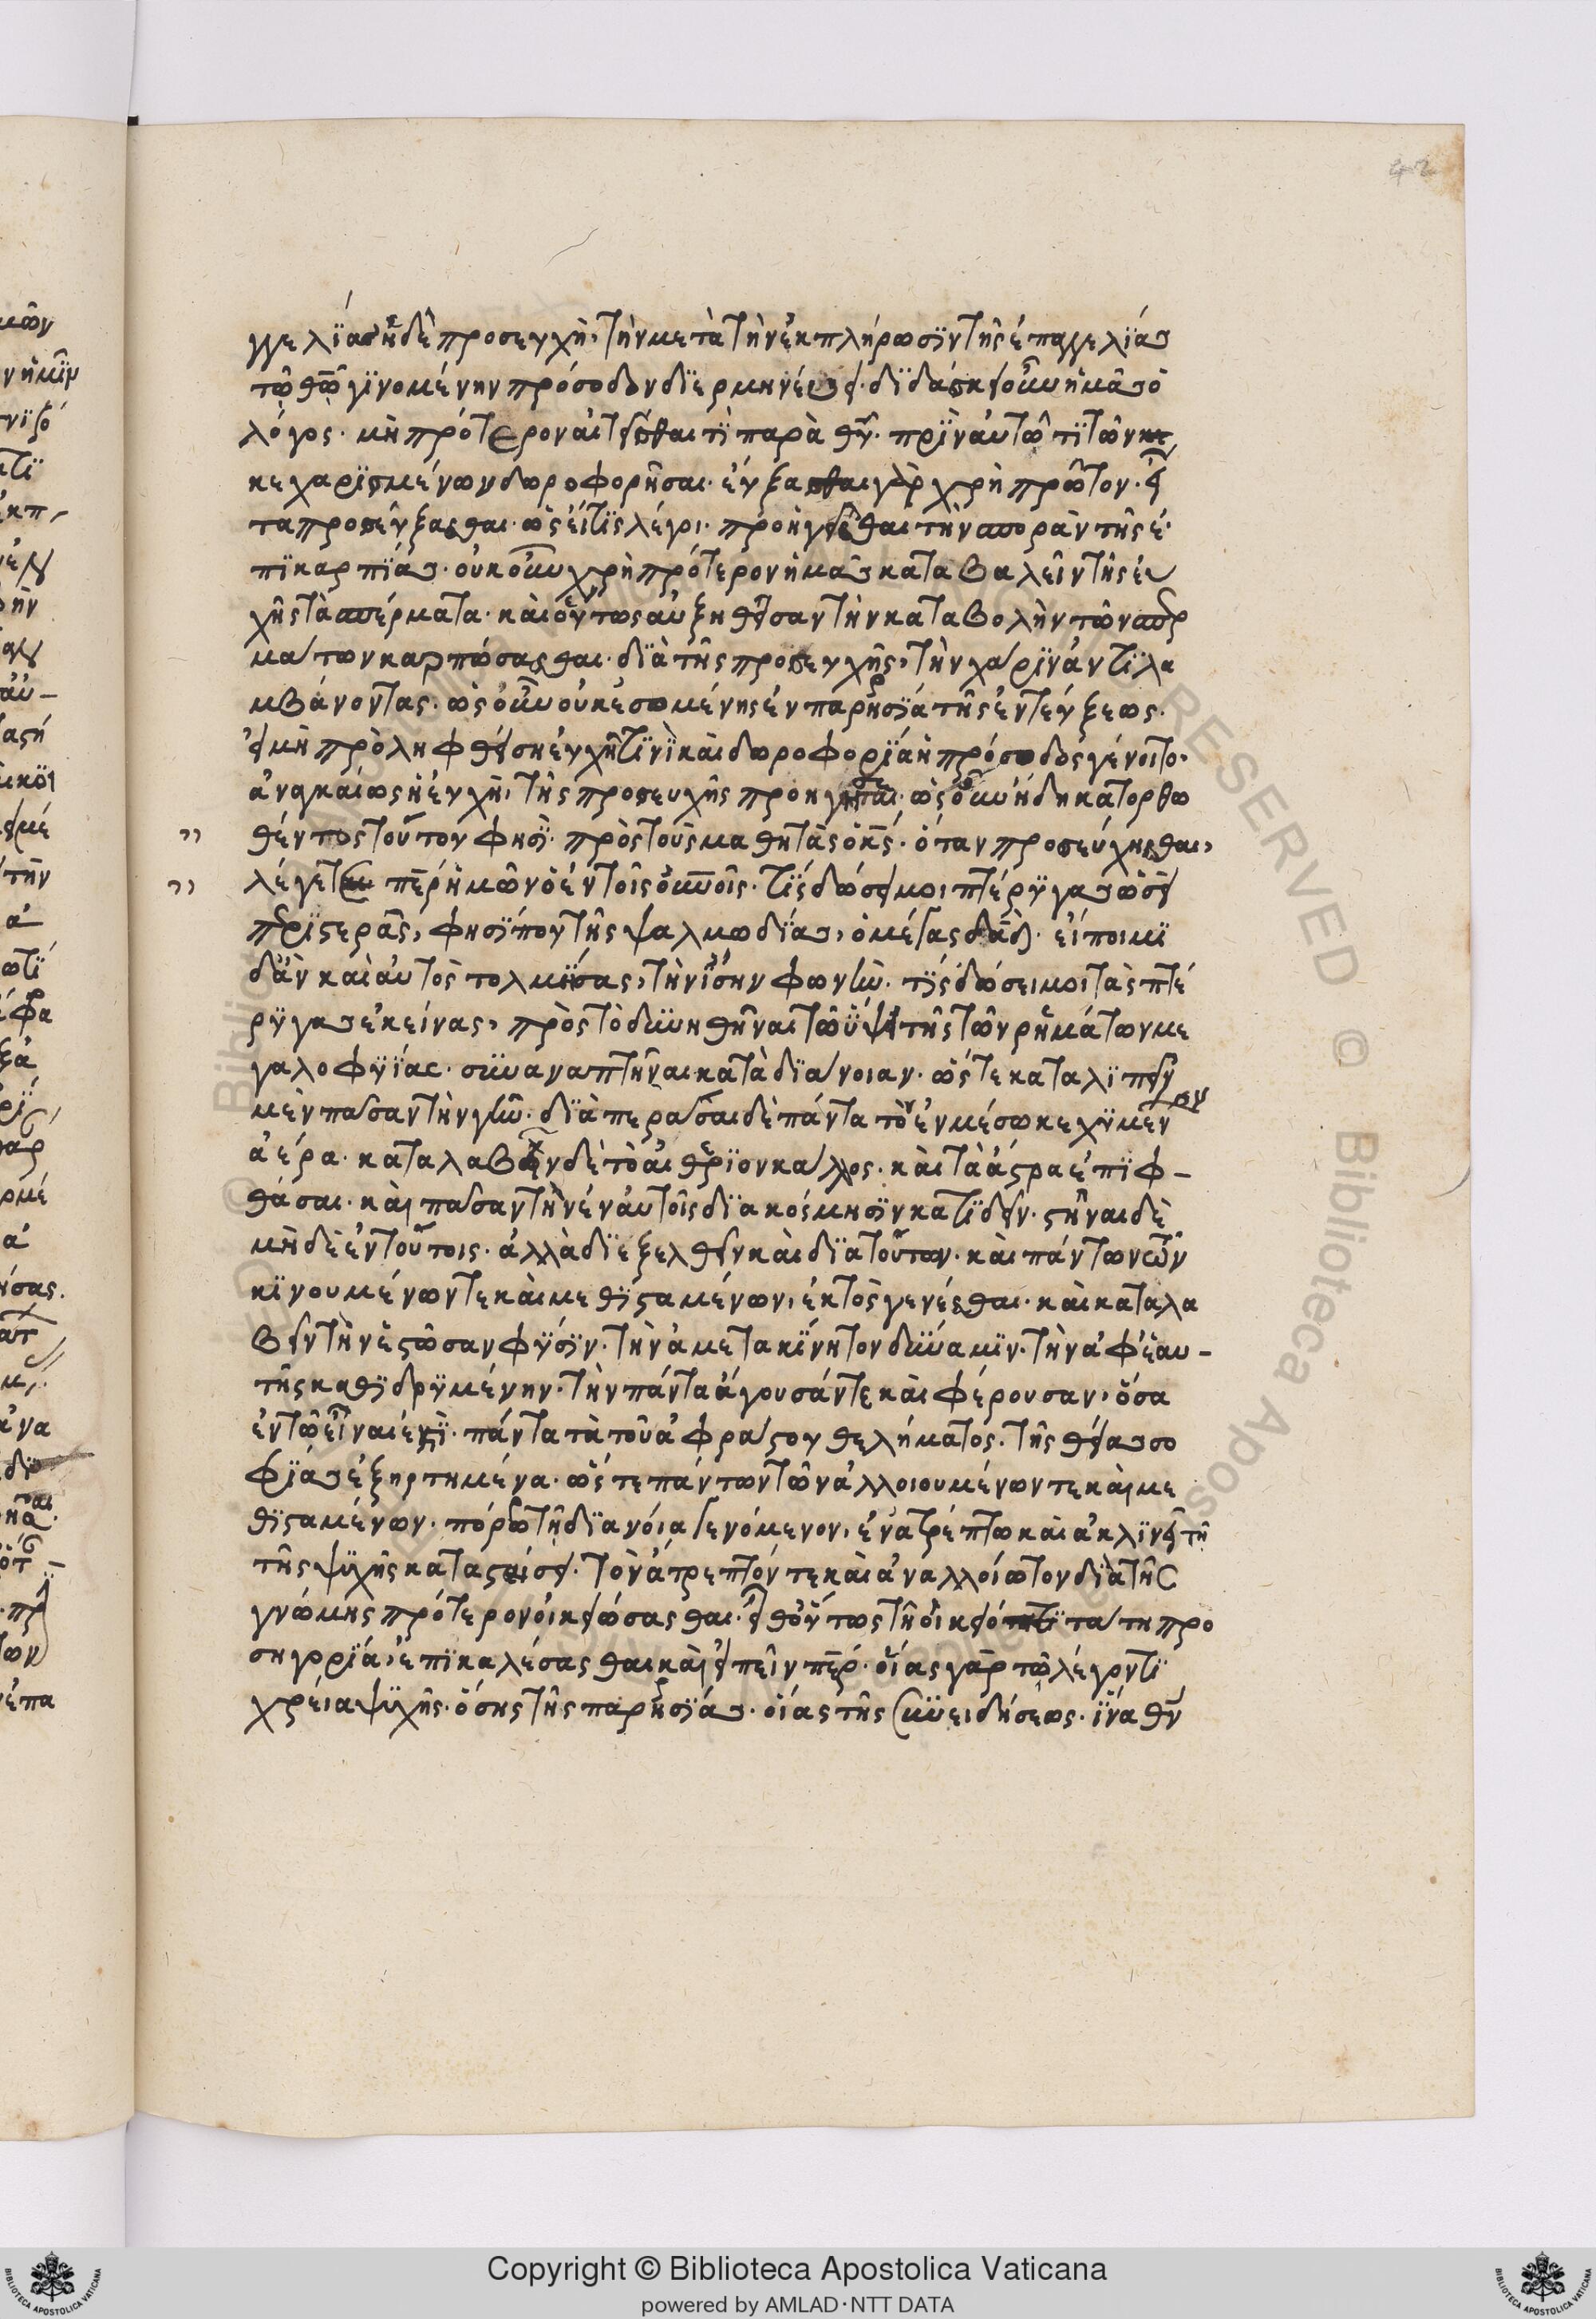 γγελίας ἡ δὲ προσευχὴ, τὴν μετὰ τὴν ἐκπλήρωσϊν τῆς ἐπαγγελΐας
τῶ θῶ γϊνομένην πρόσοδον δϊερμηνέυει. δϊδάσκει οὖν ἡμᾶς ὁ
λόγος. μὴ πρότερον αἰτεῖσθαι τϊ παρὰ θυ. πρϊν ἀυτῶ τϊ τῶν
κεχαρϊσμένων δωροφορῆσαι. ἐύξασθαι γὰρ χρὴ πρῶτον. εἶ
τα προσεύξασθαι. ὡς εἴ τϊς λέγοι. προηγεῖσθαι τὴν σποράν τῆς ἐ
πϊκαρπΐας. οὐκοῦν χρὴ πρότερον ἡμᾶς καταβαλεῖν τῆς ἐυ
χῆς τὰ σπέρματα. καὶ οὕτως αὐξηθεῖσαν τὴν καταβολὴν τῶν σπερ
μάτων καρπώσασθαι. δϊὰ τῆς προσευχῆς, τὴν χάρϊν ἀντϊλα
μβάνοντας. ὡς οὖν οὐκ ἐσομένης ἐν παρρησΐα τῆς ἐντεύξεως.
εἰ μὴ πρὸληφθείση ἐυχῆ τϊνϊ καὶ δωροφορΐα ἡ πρόσοδος γένοιτο.
ἀναγκαίως ἡ ἐυχὴ, τῆς προσευχῆς προηγήσεται. ὡς οὖν ἤδη κατορθω
θέντος τοῦτου φησϊ. πρὸς τοὺς μαθητὰς ὁ κς. ὁταν προσεύχησθαι,
λέγετε περ ἡμῶν ὁ ἐν τοῖς οὐνοῖς. τΐς δώσει μοι πτέρϋγας ὡσεὶ
περϊστερᾶς, φησΐ που τῆς ψαλμωδΐας, ὁ μέγας δαδ. εἴποιμϊ
δ' ἂν καὶ αυτὸς τολμήσας, τὴν ἴσην φωνὴν. τΐς δώσει μοι τὰς πτέ
ρϋγας ἐκείνας, πρὸς τὸ δϋνηθῆναι τῶ ὕψει τῆς τῶν ρημάτων με
γαλοφϋΐας. σϋναναπτῆναι κατὰ δϊάνοιαν. ὥστε καταλϊπεῖν
μὲν πάσαν τὴν γῆν. δϊὰπεράσαι δὲ πάντα τὸν ἐν μέσω κεχϋμένον
ἀέρα. καταλαβεῖν δὲ τὸ αἰθέρϊον κάλλος. καὶ τὰ άστρα ἐπϊφ-
θάσαι. καὶ πάσαν τὴν ἐν ἀυτοῖς δϊακόσμησϊν κατϊδεῖν. στῆναι δὲ
μὴ δὲ ἐν τοῦτοις. ἀλλὰ δϊεξελθεῖν καὶ δϊὰ τοῦτων. καὶ πάντων τῶν
κϊνουμένων τε καὶ μεθϊσταμένων, ἐκτὸς γενέσθαι. καὶ καταλα
βεῖν τὴν ἑστῶσαν φϋσϊν. τὴν ἀμετακϊνητον δϋναμϊν. τὴν ἀφ' ἑαυ-
τῆς καθϊδρϋμένην. τὴν πάντα άγουσάν τε καὶ φέρουσαν, ὅσα
ἐν τῶ εἶναι ἐστϊ. πάντα τὰ τοῦ ἀφράστου θελήματος. τῆς θείας σο
φΐας ἐξηρτημένα. ὥστε πάντων τῶν ἀλλοιουμένων τε καὶ με
θϊσταμένων. πόρρω τῆ δϊανόια γενόμενον, ἐν ἀτρέπτω καὶ ἀκλϊνεῖ τῆ
τῆς ψϋχῆς καταστάσει. τὸν ἄτρεπτόν τε καὶ ἀναλλοίωτον δϊὰ τῆς
γνώμης πρότερον ὀικειώσασθαι. εἶθ' οὕτως τῆ οἰκειότάτη προ
σηγορΐα, ἐπϊκαλέσασθαι καὶ εἰπεῖν περ. οἵας γὰρ τῶ λέγοντϊ
χρεία ψϋχῆς. ὅσης τῆς παρρησΐας. οἵας τῆς σϋνειδήσεως. ἵνα θν